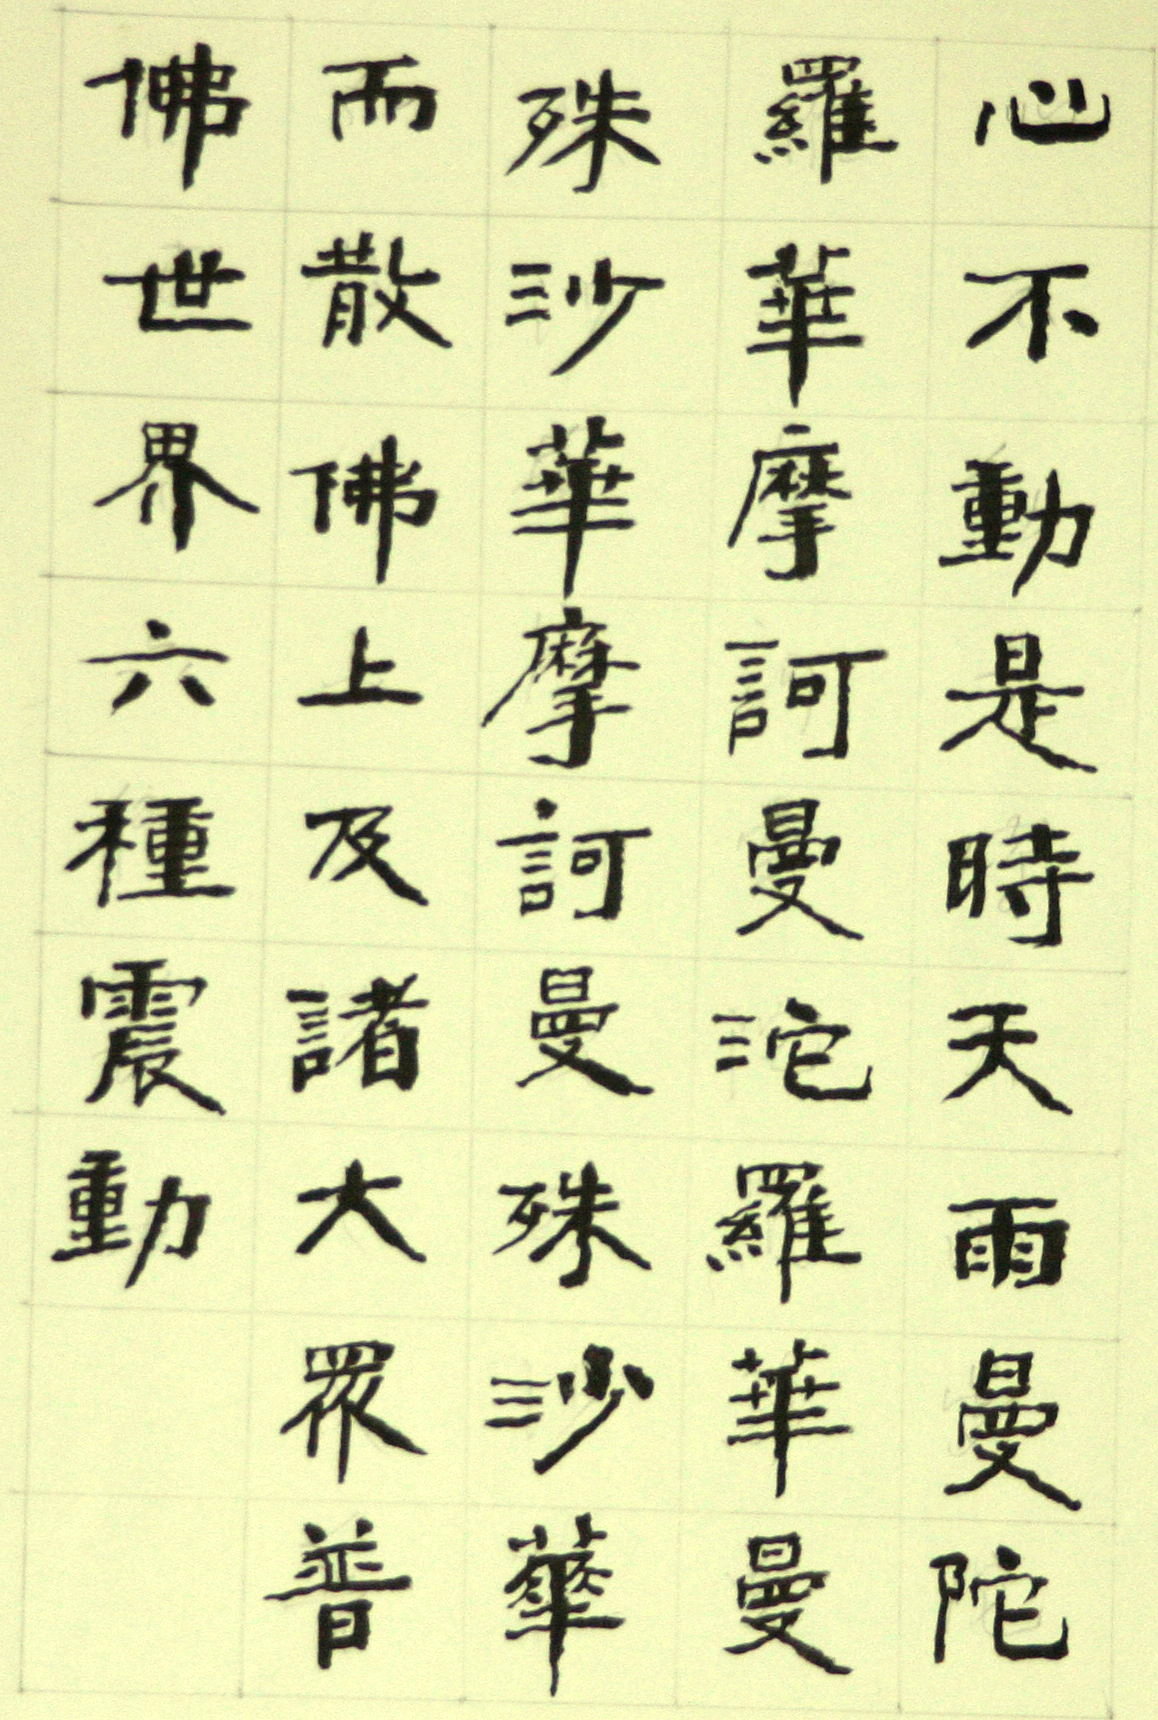 心不動是時天雨曼陀
羅華摩訶曼沱羅華曼
殊沙華摩訶曼殊沙華
而散佛上及諸大眾普
佛世界六種震動